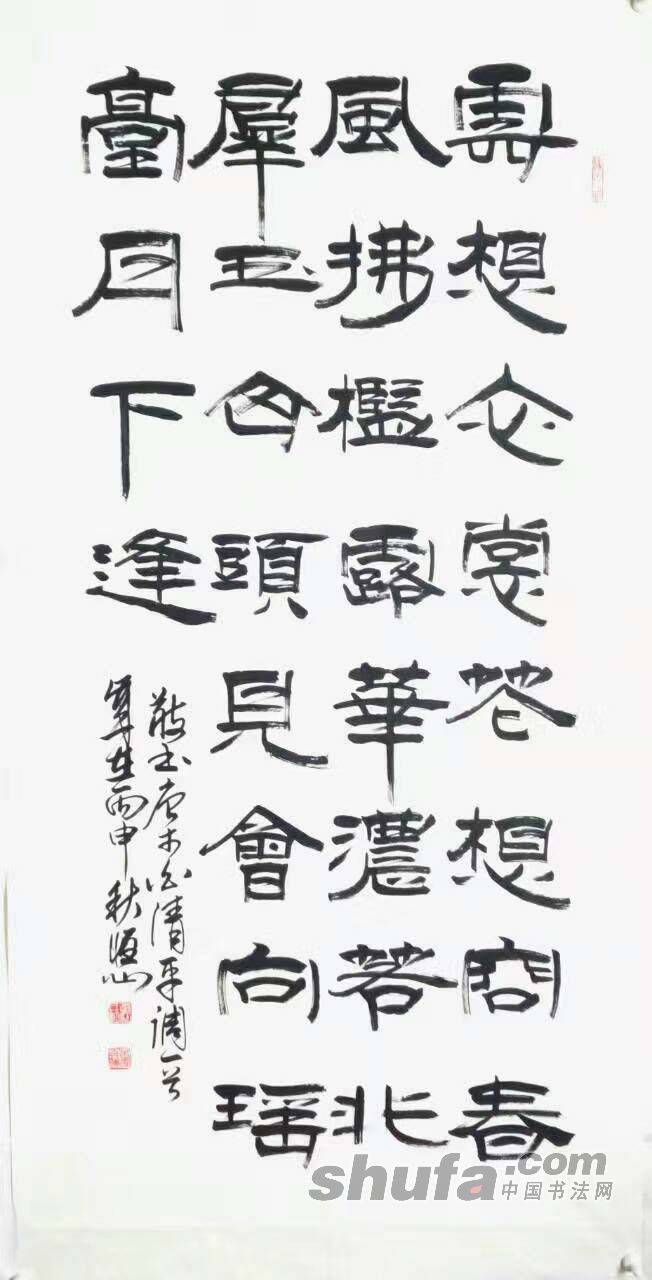 雲想衣裳花想容春
風拂檻露華濃若北
羣玉山頭見會向瑤
臺月下逢
敬书唐李白清平调一首
歲在丙申秋
shufa.com
中国书法网